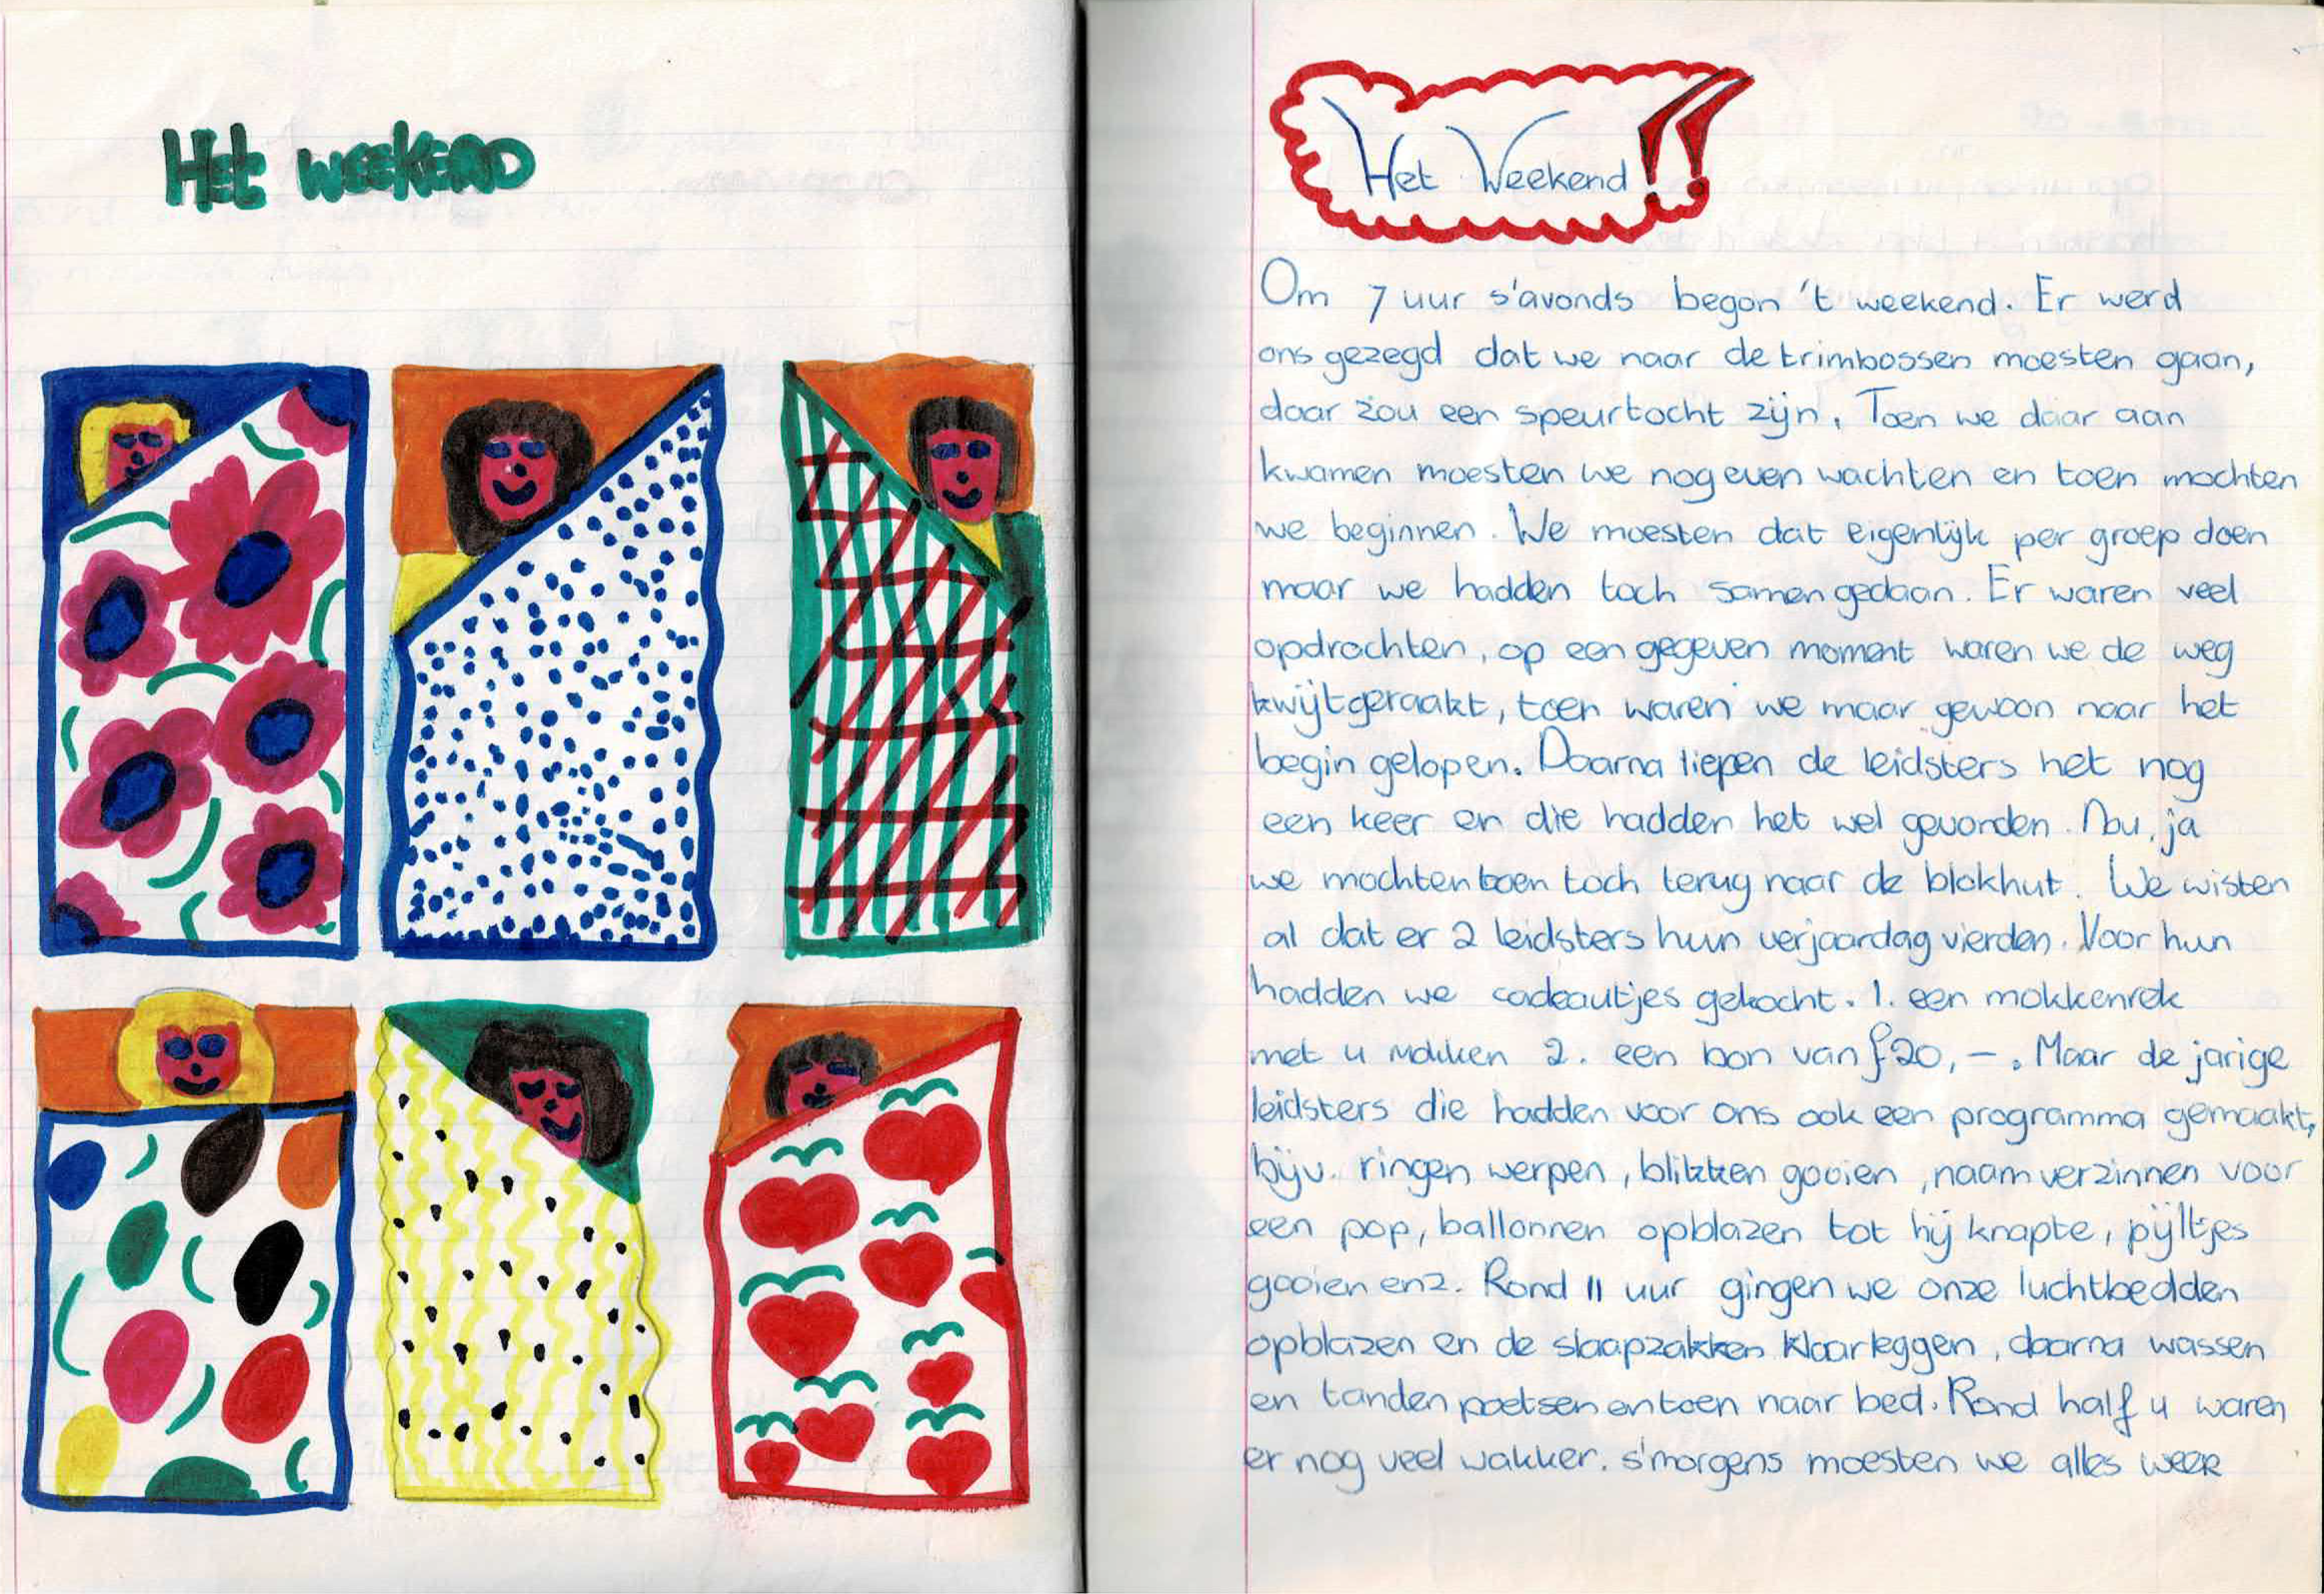 Het weekend
Het Weekend!!
Om 7 uur s'avonds begon 't weekend. Er werd
ons gezegd dat we naar de trimbossen moesten gaan,
daar zou een speurtocht zijn. Toen we daar aan
kwamen moesten we nog even wachten en toen mochten
we beginnen. We moesten dat eigenlijk per groep doen
maar we hadden toch samen gedaan. Er waren veel
opdrachten, op een gegeven moment waren we de weg
kwijtgeraakt, toen waren we maar gewoon naar het
begin gelopen. Daarna liepen de leidsters het nog
een keer en die hadden het wel gevonden. Nou, ja
we mochten toen toch terug naar de blokhut. We wisten
al dat er 2 leidsters hun verjaardag vierden. Voor hun
hadden we cadeautjes gekocht. 1. een mokkenrek
met 4 mokken 2. een bon van ƒ20,-. Maar de jarige
leidsters die hadden voor ons ook een programma gemaakt,
bijv. ringen werpen, blikken gooien, naam verzinnen voor
een pop, ballonnen opblazen tot hij knapte, pijltjes
gooien enz. Rond 11 uur gingen we onze luchtbedden
opblazen en de slaapzakken klaarleggen, daarna wassen
en tanden poetsen en toen naar bed. Rond half 4 waren
er nog veel wakker. s'morgens moesten we alles weer